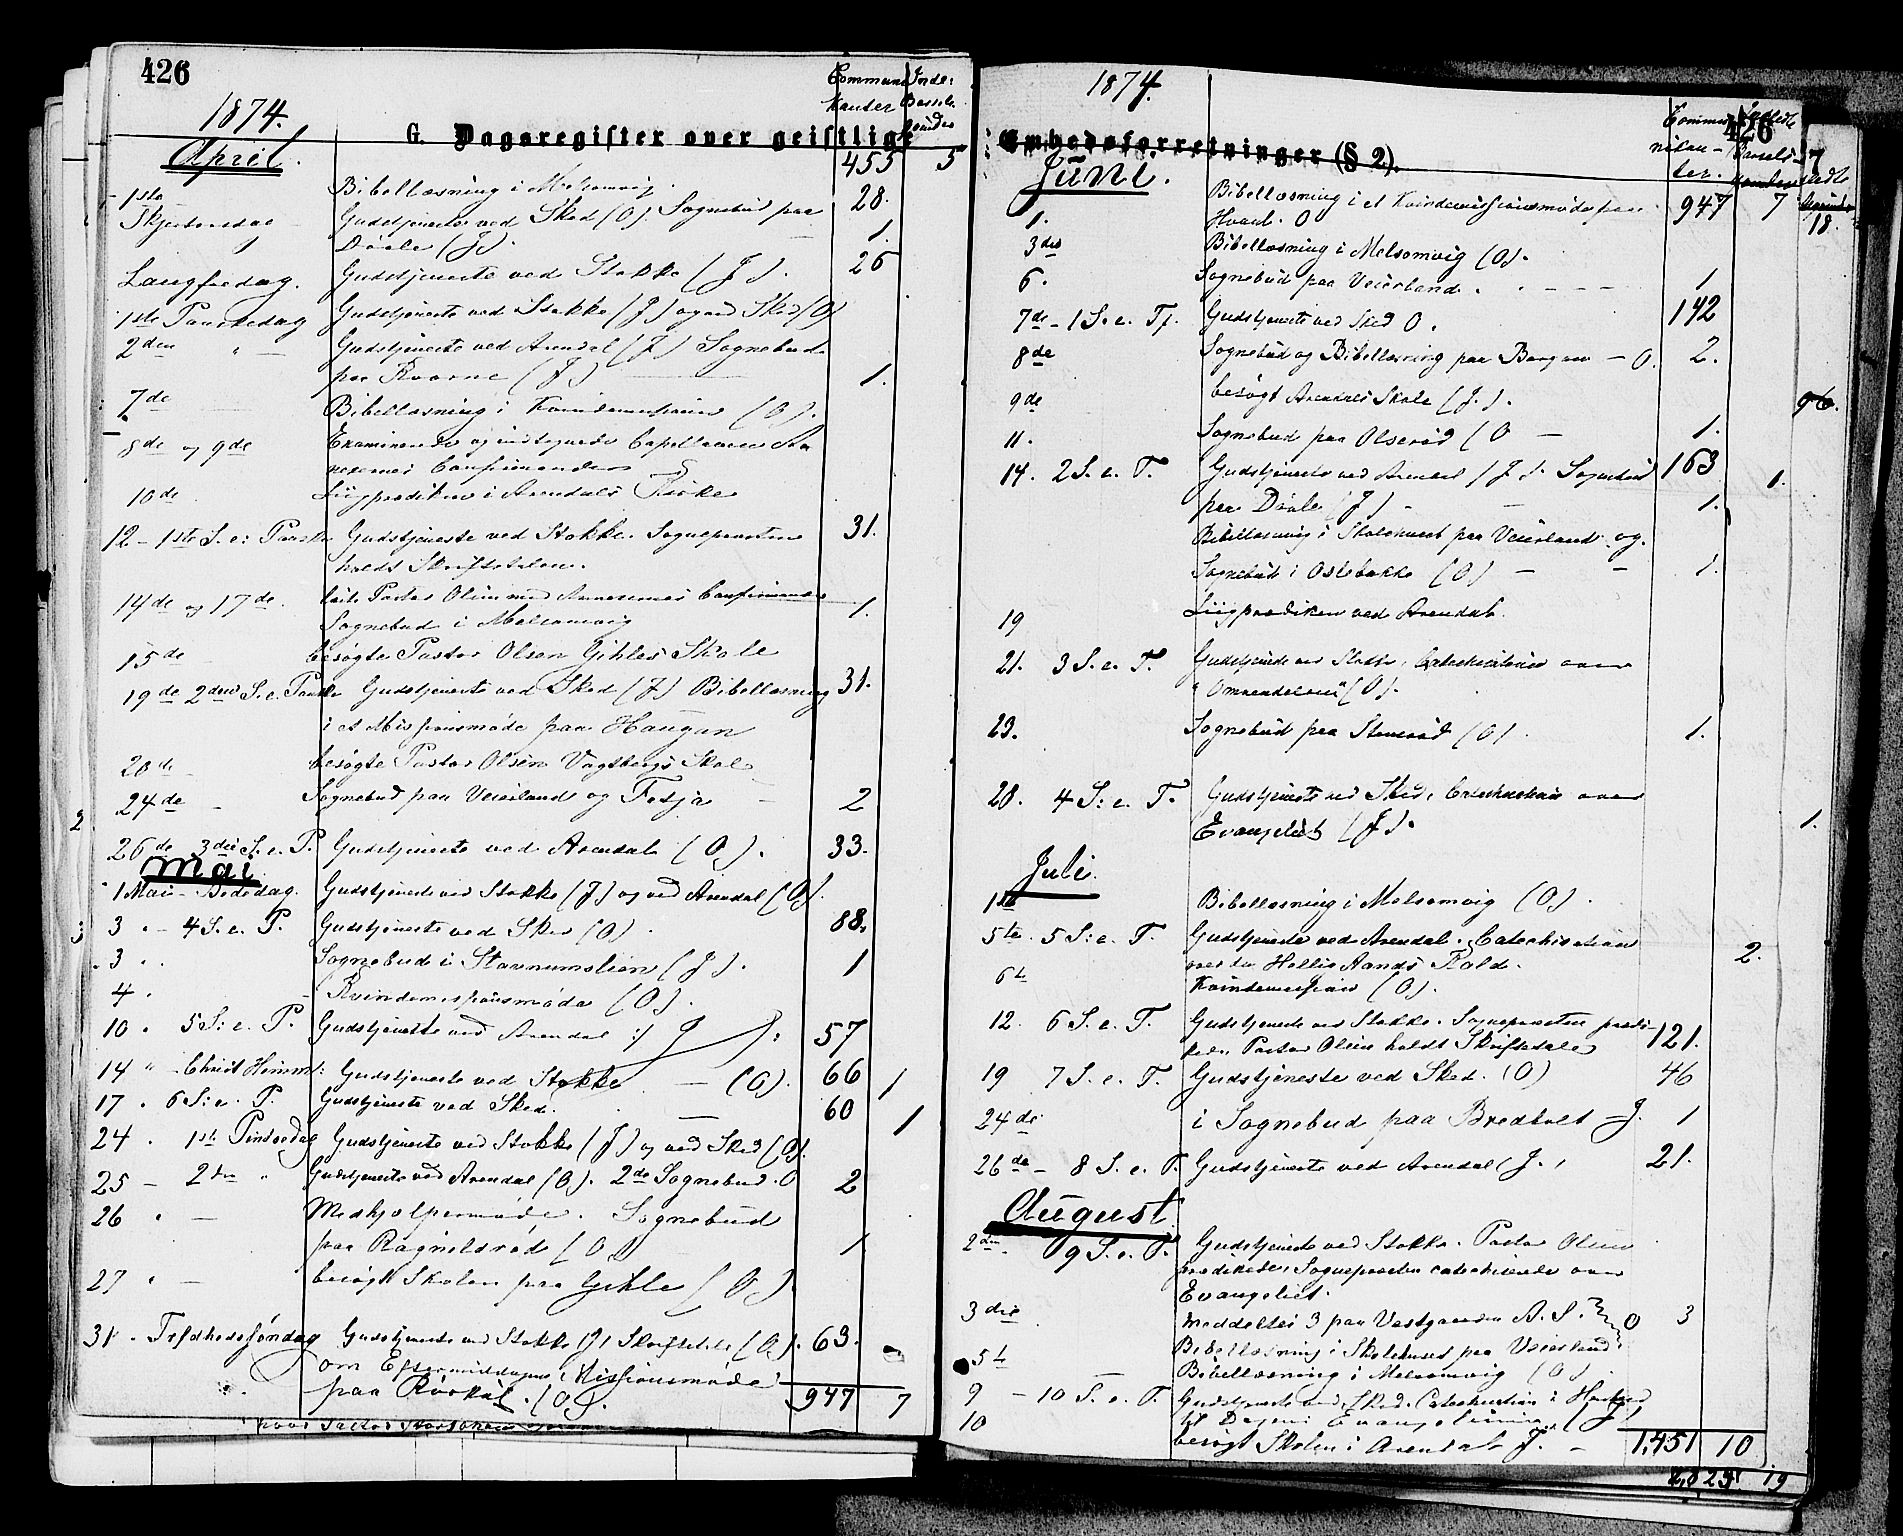 426
1874.
G. Dagsregister over geistlige
April.
455 5
1ste Bibellæsning i Melsomvig.
Skjertorsdag Gudstjeneste ved Sked (O). Sognebud paa 28.
Døvle (J). 1.
Langfredag. Gudstjeneste ved Stokke (J). 26
1ste Paaskedag Gudstjeneste ved Stokke (J) og ved Sked (O)
2den " — Gudstjeneste ved Arendal (J) Sognebud
paa (J) 1.
7de Bibellæsning i Kvindemission (O).
8de og 9de Examinerede og indtegnede Capellanen An
nexernes Confirmander
10de Liigprædiken i Arendals Kirke
12 — 1ste S. e: Paaske Gudstjeneste ved Stokke. Sognepresten 31.
holdt Skriftetalen.
14de og 17de Pastor Olsen med Annexernes Confirmander
Sognebud i Melsomvig 1.
15de besøgte Pastor Olsen Gihles Skole
19de 2den S. e. Paaske Gudstjeneste ved Sked (J) Bibellæsning 31.
i et Missionsmøde paa Haugan
20de besøgte Pastor Olsen Vagtbergs Skole
24de Sognebud paa Veierland og Fosja 2
26de 3die S. e. P. Gudstjeneste ved Arendal (O). 33.
Mai
1 Mai - Bededag. Gudstjeneste ved Stokke (J) og ved Arendal (O).
3 . — 4 S. e. P. Gudstjeneste ved Sked (O). 88.
3 . Sognebud i Stavnumslien (J). 1
4 . Kvindemissionsmøde (O).
10 . 5 S: e. P. Gudstjeneste ved Arendal J 57
14 " Christi Himmf: Gudstjeneste ved Stokke — (O). 66 1
17 . 6 S: e. P. Gudstjeneste ved Sked. 60 1
24 . 1ste Pintsedag Gudstjeneste ved Stokke (J) og ved Sked (O).
25 — 2den " Gudstjeneste ved Arendal (O). 2de Sognebud. O 2
26 . — Medhjælpermøde. Sognebud
paa Ragnelsrød (O) 1
27 . — besøgt Skolen paa Gihle (O)
31 . Trefoldhedssøndag Gudstjeneste ved Stokke (J) Skriftetale (O). 63.
om Eftermiddagen Missionsmøde
paa (O). 947 7
1874.
426
Embedsforretninger (§ 2).
Juni.
947 7 18.
1. Bibellæsning i et Kvindemissionsmøde paa
O
3die Bibellæsning i Melsomvig (O).
6. Sognebud paa Veierland. 1
7de - 1 S. e. Tf. Gudstjeneste ved Sked O. 142
8de Sognebud og Bibellæsning paa Borgen — O. 2.
9de besøgt Arendals Skole (J.).
96.
11. Sognebud paa Olserød (O — 1.
14. 2 S. e. T. Gudstjeneste ved Arendal (J). Sognebud 163 1.
paa Døvle (J) 1.
Bibellæsning i Skolehuset paa Veierland og
Sognebud i Ostebakke (O) — 1.
19 Liigprædiken ved Arendal.
21. 3 S. e. T. Gudstjeneste ved Stokke, Catechisation over
"Omvendelsen" (O).
23. Sognebud paa (O). 1.
28. 4 S: e. T. Gudstjeneste ved Sked, Catechisation over
Evangeliet (J). 1.
Juli.
1ste Bibellæsning i Melsomvig (O).
5te . 5 S: e. T. Gudstjeneste ved Arendal. Catechisation 2.
over den Hellig Aands Kald.
6te Kvindemission (O).
12. 6 S. e. T. Gudstjeneste ved Stokke. Sognepresten prædi-
kede. Pastor Olsen holdt Skriftetale 121.
19 7 S. e. T. Gudstjeneste ved Sked. (O) 46
24de i Sognebud paa Bredholt J. 1
26de — 8 S. e. T. Gudstjeneste ved Arendal (J.) 21.
August
2den 9 S. e. T. Gudstjeneste ved Stokke. Pastor Olsen
prædikede, Sognepresten catechiserede over
Evangeliet.
3die meddeltes 3 paa Vestgaarden A. S. O 3
5te Bibellæsning i Skolehuset paa Veierland.
Bibellæsning i Melsomvig (O)
9 — 10 S. e. T. Gudstjeneste ved Sked. Catechisation i
til Dagens Evangelium (J)
10 besøgt Skolen i Arendal J. —
1,451 10
19